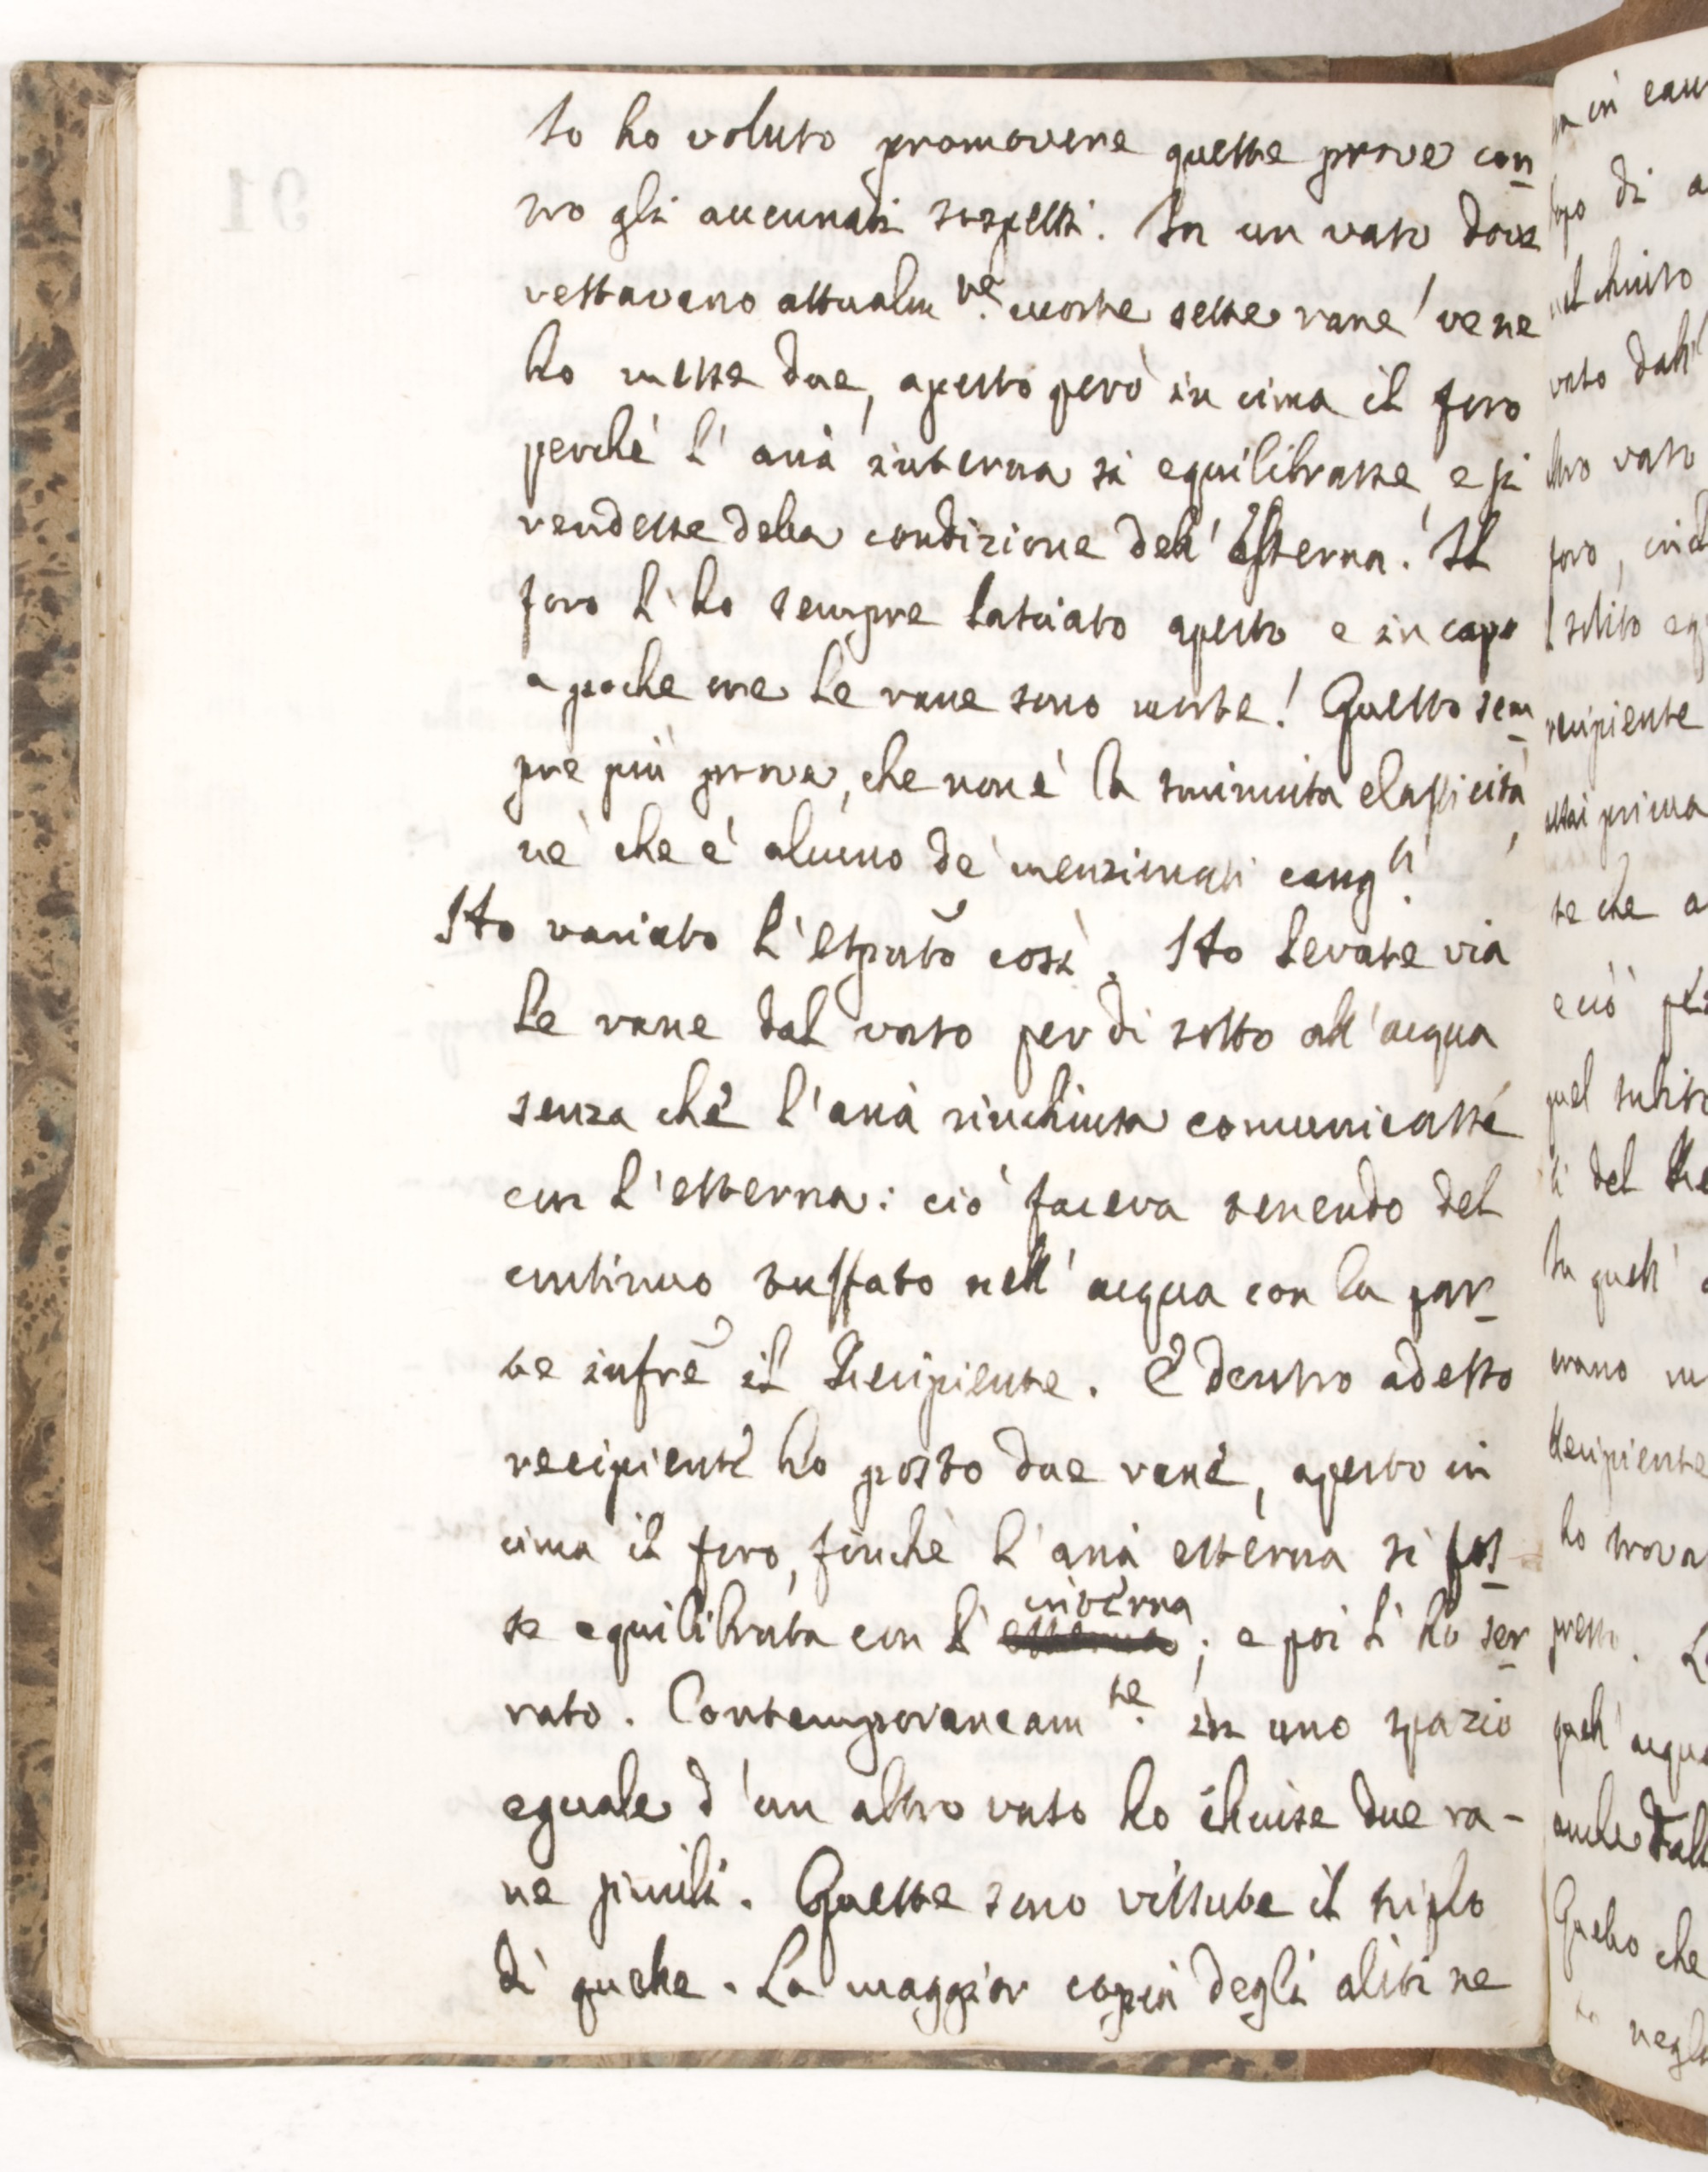 Io ho voluto promovere queste prove con
tro gli accennati sospetti. In un vaso dove
restavano attualm.te morte sette rane ve ne
ho messe due, aperto però in cima il foro
perchè l'aria interna si equilibrasse, e si
rendesse della condizione dell'Esterna. Il
foro l'ho sempre lasciato aperto e in capo
a poche ore le rane sono morte! Questo sem
pre più prova, che non è la sminuita elasticità
nè che è alcuno de' menzionati cang.ti
Ho variato l'esprto così. Ho levate via
le rane dal vaso per di sotto all'acqua
senza che l'aria rinchiusa comunicasse
con l'esterna: ciò faceva tenendo del
continuo tuffato nell'acqua con la par
te infre il Recipiente. E dentro adesso
recipiente ho posto due rane, aperto in
cima il foro, finchè l'aria esterna si fos
se equilibrata con l' interna; e poi l'ho ser
rato. Contemporaneam.te in uno spazio
eguale d'un altro vaso ho chiuse due ra-
ne simili. Queste sono vissute il triplo
di quelle. La maggior copia degli aliti ne
91